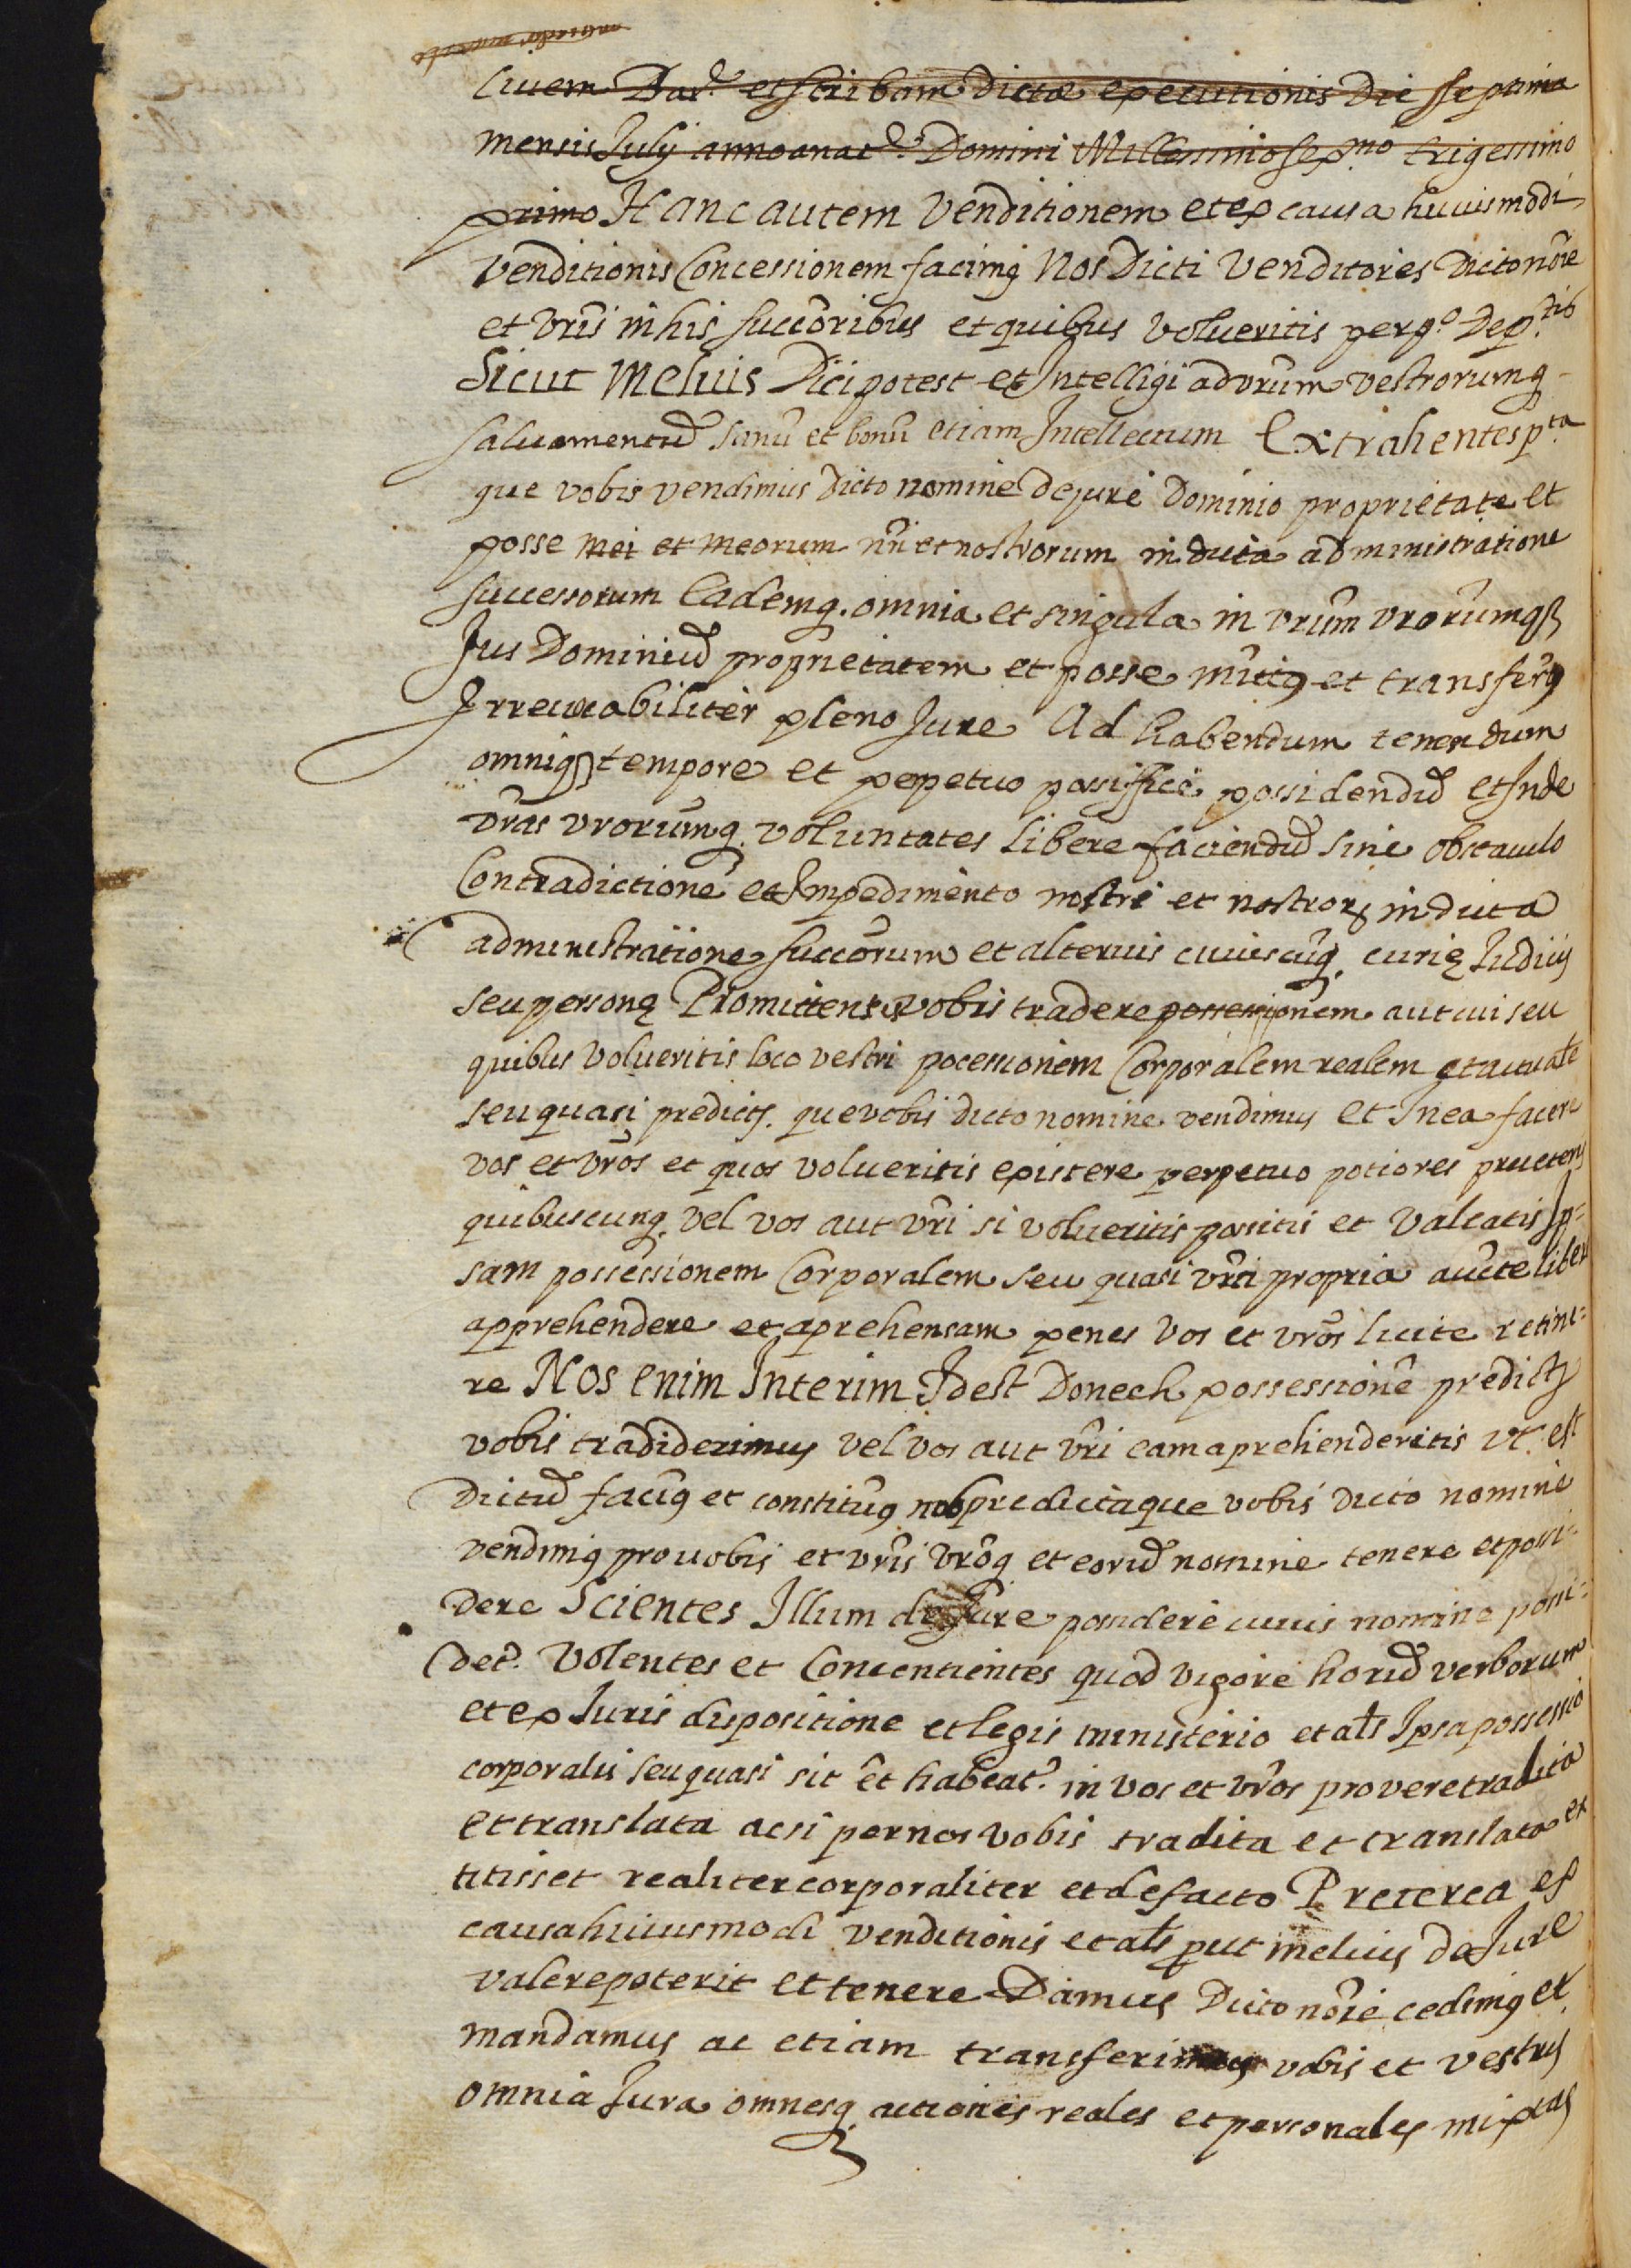 Ciuem Bar.e et scribam dictæ executionis Die septima
mensis July anno a nat.e Domini Millesimo sex.mo trigessimo
primo Hanc autem Venditionem et ex causa huiusmodi
venditionis Concessionem facimꝰ Nos Dicti Venditores Dicto nõie
et vr̃is in his succõribus et quibus volueritis perp.o Dep.tis
Sicut Melius Dici potest et Intelligi ad vr̃um vestrorumq
saluamentũ sanũ et bonũ etiam Intellectum Extrahentes p.ta
que vobis vendimus dicto nomine de jure Dominio proprietate et
posse mei et meorum nr̃i et nostrorum in dicta administratione
successorum Eademq. omnia et singula in vr̃um vrorũmqꝫ
Jus Dominiũ proprietatem et posse mittꝰ et transferꝰ
Irreuocabiliter pleno Jure Ad habendum tenendum
omniqꝫ tempore et perpetuo passiffice possidendũ et Inde
vr̃as vrorũmq. voluntates libere faciendũ sine obstaculo
Contradictione et Impedimento nostri et nostrorꝫ in dicta
administratione succõrum et alterius cuiuscũq. curię Iudicis
seu personę Promittentes vobis tradere possessionem aut cui seu
quibus volueritis loco vestri pocessionem Corporalem realem et actualẽ
seu quasi predictꝫ. que vobis dicto nomine vendimus et In ea facere
vos et vr̃os et quos volueritis existere perpetuo potiores pre ceteris
quibuscunq. vel vos aut vr̃i si volueritis possitis et valeatis Ip=
sam possessionem Corporalem seu quasi vr̃i propria aucte libere
apprehendere et aprehensam penes vos et vr̃os licite retine=
re Nos enim Interim Idest Donech possessionẽ predictꝫ
vobis tradiderimus vel vos aut vr̃i eam aprehenderitis vt est
dictũ facimꝰ et constituimꝰ nos predicta que vobis dicto nomine
vendimꝰ pro vobis et vr̃is vr̃oq et eorũ nomine tenere et possi=
dere Scientes Illum de Jure possidere cuius nomine possi=
det.r Volentes et Concentientes quod vigore horũ verborum
et ex Iuris dispositione et legis ministerio et als Ipsa possessio
corporalis seu quasi sit et habeat.r in vos et vr̃os pro vere tradita
et translata acsi per nos vobis tradita et translata ex
titisset realiter corporaliter et de facto Preterea ex
causa huiusmodi venditionis et als put melius de Jure
valere poterit et tenere Damus Dicto nõie cedimꝰ et
mandamus ac etiam transferimus vobis et vestris
omnia Jura omnesq. actiones reales et personales mixtas